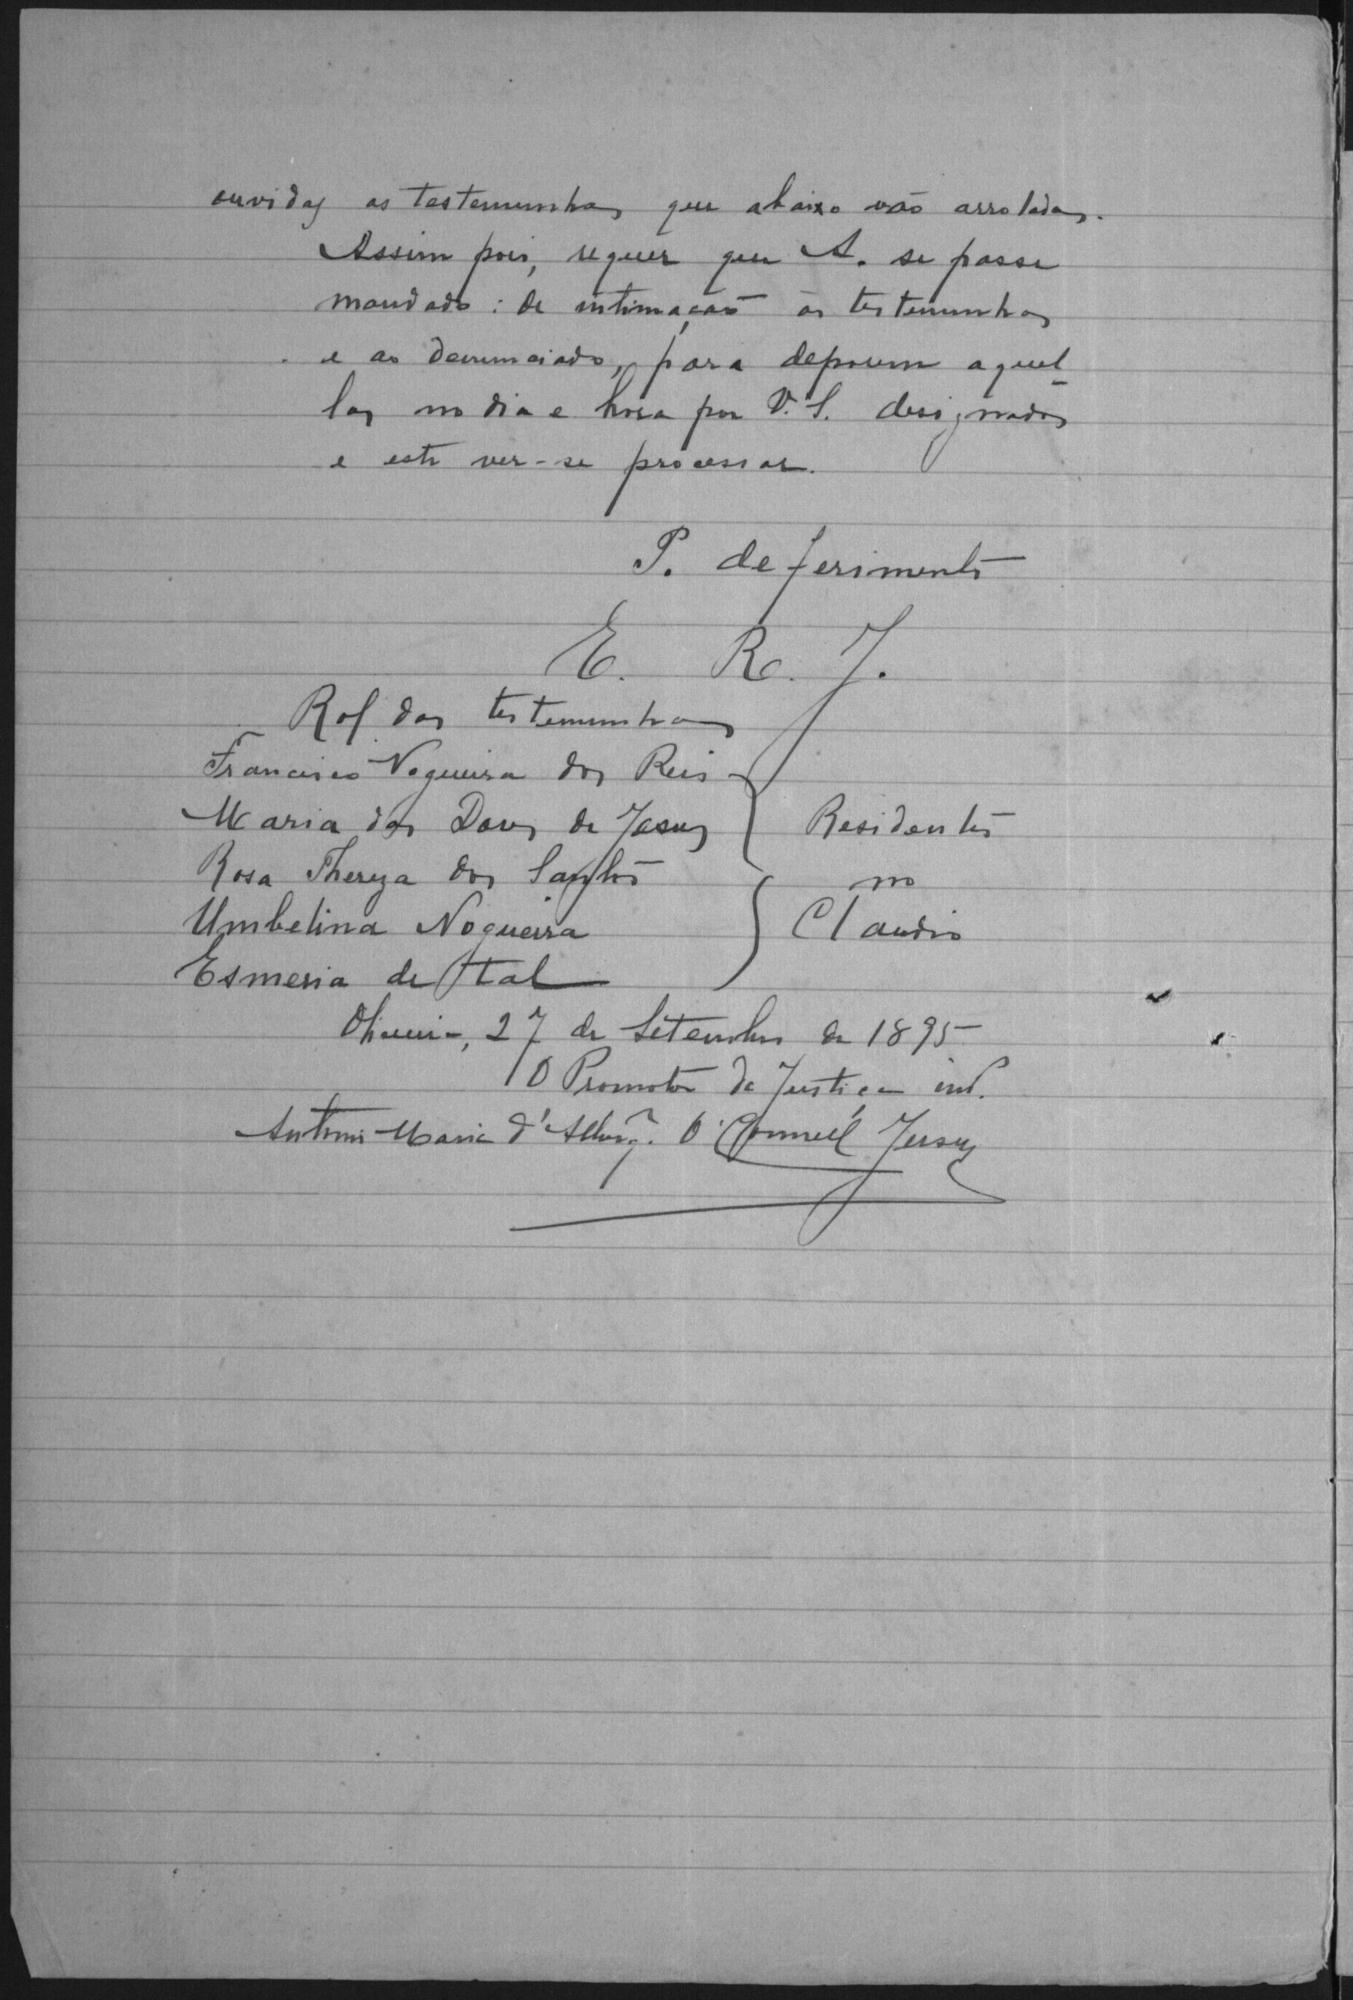 ouvidas as testemunhas que abaixo vão arroladas.
Assim pois, requer que A. se passe
mandado: de intimação ás testemunhas
e ao denunciado, para deporem aquel-
las no dia e hora por V. S. designados
e este ver-se processar.
P. deferimento
E. R. J.
Rol das testemunhas
Francisco Nogueira dos Reis
Maria das Dores de Jesus
Residentes
Rosa Thereza dos Santos
no
Umbelina Nogueira
Claudio
Esmeria de tal
Oliveira, 27 de Setembro de 1895
O Promotor da Justiça int.
Antonio Maria d'Alb. O'Connell Jersey